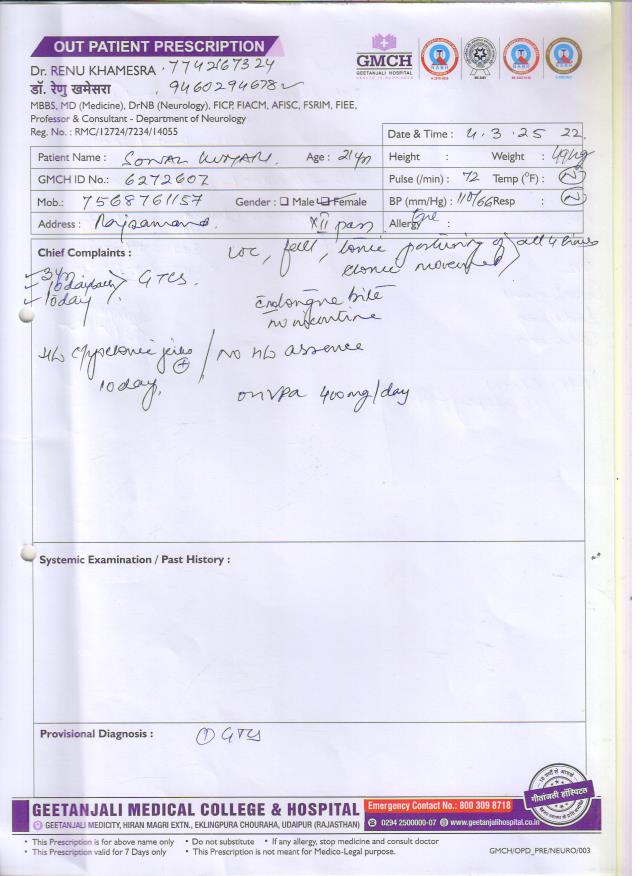 OUT PATIENT PRESCRIPTION
Dr. RENU KHAMESRA 7742167324
डॉ. रेणु खमेसरा 9460294678
MBBS, MD (Medicine), DrNB (Neurology), FICP, FIACM, AFISC, FSRIM, FIEE,
Professor & Consultant - Department of Neurology
Reg. No. : RMC/12724/7234/14055
GMCH
GEETANJALI HOSPITAL
Date & Time : 4.3.25 22
Patient Name : Age : 21 yr
Height : Weight : 49 kg
GMCH ID No.: 6272607
Pulse (/min) : 72 Temp (°F) : N
Mob.: 7568761157 Gender : Male Female
BP (mm/Hg) : 110/66 Resp : N
Address : Rajsamand. XII pass
Allergy :
Chief Complaints :
LOC, fell, tonic posturing of all 4 limbs
clonic movement
GTCS
10 day
tongue bite
no incontine
H/o myoclonic jerks + / No H/o absence
10 day,
on VPA 400mg/day
Systemic Examination / Past History :
Provisional Diagnosis : ① GTCS
गीतांजली हॉस्पिटल
GEETANJALI MEDICAL COLLEGE & HOSPITAL
Emergency Contact No.: 800 309 8718
GEETANJALI MEDICITY, HIRAN MAGRI EXTN., EKLINGPURA CHOURAHA, UDAIPUR (RAJASTHAN)
0294 2500000-07 www.geetanjalihospital.co.in
• This Prescription is for above name only • Do not substitute • If any allergy, stop medicine and consult doctor
• This Prescription valid for 7 Days only • This Prescription is not meant for Medico-Legal purpose.
GMCH/OPD_PRE/NEURO/003